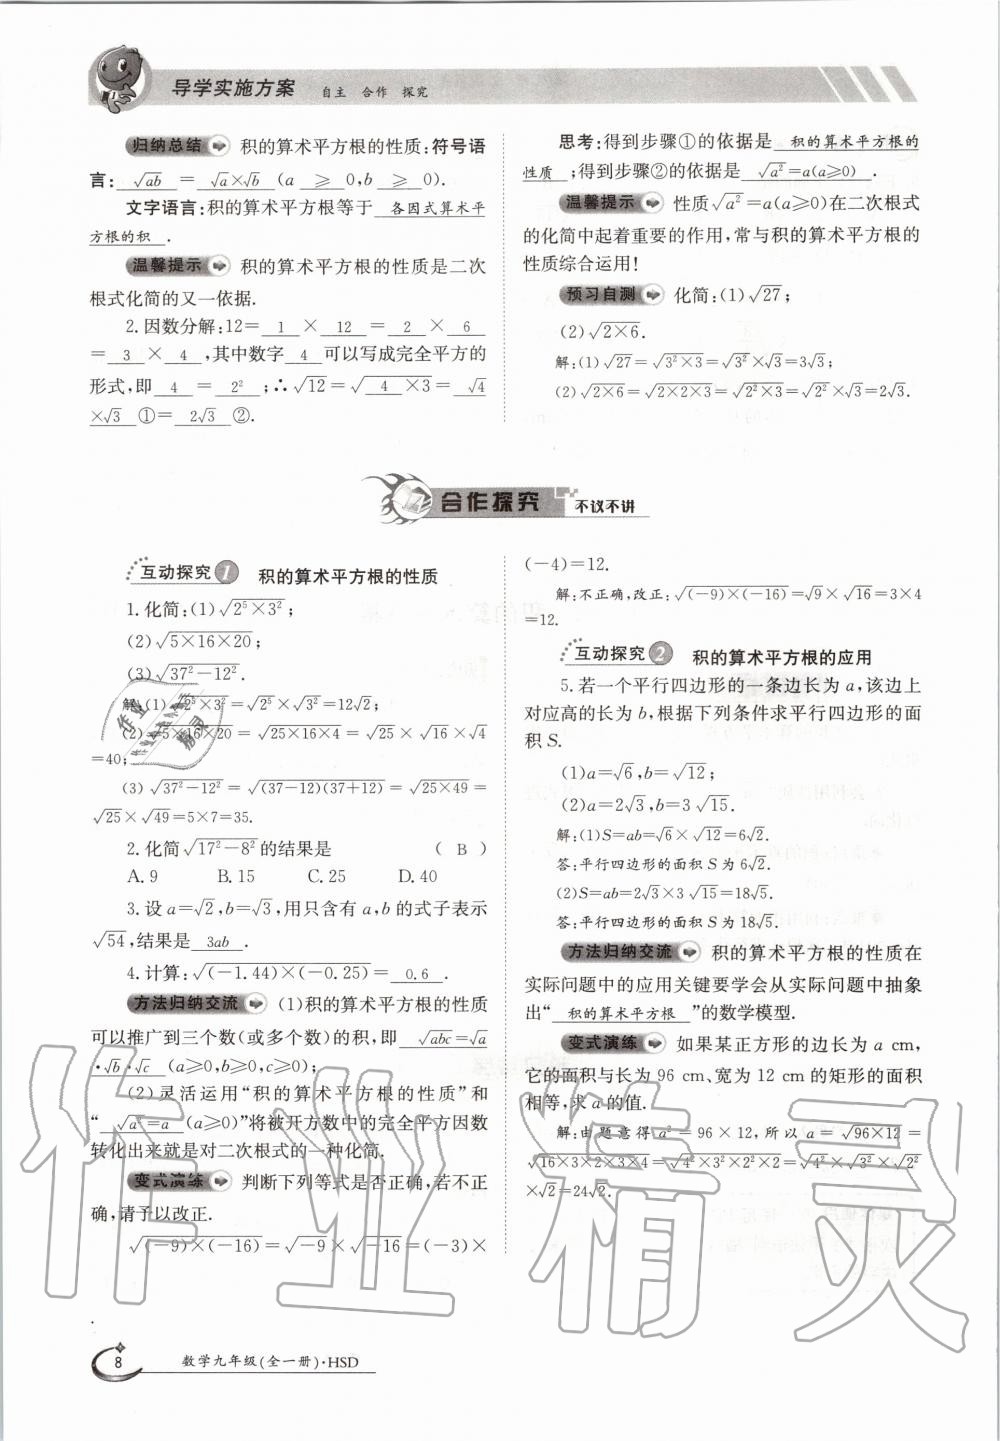 导学实施方案 自主 合作 探究
归纳总结 积的算术平方根的性质:符号语
言: √ab = √a×√b (a ≥ 0,b ≥ 0).
文字语言:积的算术平方根等于 各因式算术平
方根的积 .
温馨提示 积的算术平方根的性质是二次
根式化简的又一依据.
2.因数分解:12= 1 × 12 = 2 × 6
= 3 × 4 ,其中数字 4 可以写成完全平方的
形式,即 4 = 2² ;∴√12=√4×3= √4
×√3 ①= 2√3 ②.
思考:得到步骤①的依据是 积的算术平方根的
性质 ;得到步骤②的依据是 √a²=a(a≥0) .
温馨提示 性质√a²=a(a≥0)在二次根式
的化简中起着重要的作用,常与积的算术平方根的
性质综合运用!
预习自测 化简:(1)√27;
(2)√2×6.
解:(1)√27=√3²×3=√3²×√3=3√3;
(2)√2×6=√2×2×3=√2²×3=√2²×√3=2√3.
合作探究 不议不讲
互动探究1 积的算术平方根的性质
1.化简:(1)√2⁵×3²;
(2)√5×16×20;
(3)√37²−12².
解:(1)√2⁵×3²=√2⁵×√3²=12√2;
(2)√5×16×20=√25×16×4=√25×√16×√4
=40;
(3)√37²−12²=√(37−12)(37+12)=√25×49=
√25×√49=5×7=35.
2.化简√17²−8²的结果是 ( B )
A.9 B.15 C.25 D.40
3.设a=√2,b=√3,用只含有a,b的式子表示
√54,结果是 3ab .
4.计算:√(−1.44)×(−0.25)= 0.6 .
方法归纳交流 (1)积的算术平方根的性质
可以推广到三个数(或多个数)的积,即 √abc=√a
·√b·√c (a≥0,b≥0,c≥0);
(2)灵活运用“积的算术平方根的性质”和
“ √a²=a (a≥0)”将被开方数中的完全平方因数
转化出来就是对二次根式的一种化简.
变式演练 判断下列等式是否正确,若不正
确,请予以改正.
√(−9)×(−16)=√−9×√−16=(−3)×
(−4)=12.
解:不正确,改正:√(−9)×(−16)=√9×√16=3×4
=12.
互动探究2 积的算术平方根的应用
5.若一个平行四边形的一条边长为a,该边上
对应高的长为b,根据下列条件求平行四边形的面
积S.
(1)a=√6,b=√12;
(2)a=2√3,b=3√15.
解:(1)S=ab=√6×√12=6√2.
答:平行四边形的面积S为6√2.
(2)S=ab=2√3×3√15=18√5.
答:平行四边形的面积S为18√5.
方法归纳交流 积的算术平方根的性质在
实际问题中的应用关键要学会从实际问题中抽象
出“ 积的算术平方根 ”的数学模型.
变式演练 如果某正方形的边长为a cm,
它的面积与长为96 cm、宽为12 cm的矩形的面积
相等,求a的值.
解:由题意得a²=96×12,所以a=√96×12=
√16×3×2×3×4=√4²×3²×2²×2=√4²×√3²×√2²
×√2=24√2.
8 数学九年级(全一册)·HSD
作业精灵